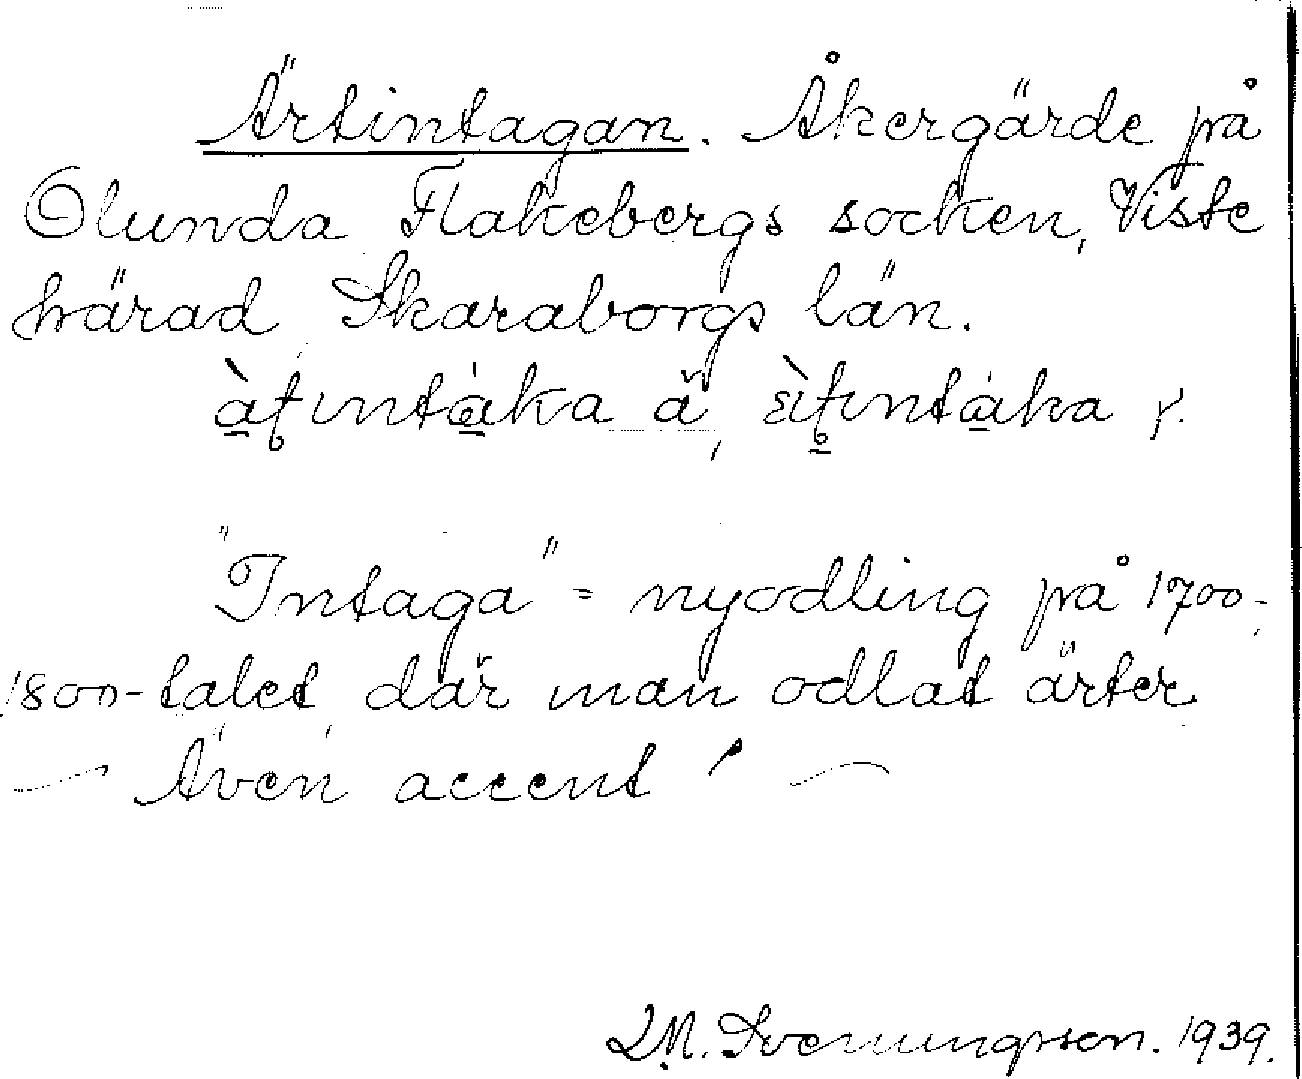 Ärtintagan. Åkergärde på
Olunda Flakebergs socken, Viste
härad Skaraborgs län.
"Intaga" = nyodling på 1700-
1800-talet, där man odlat ärter
– Även accent ´ –
Svenungsson. 1939.